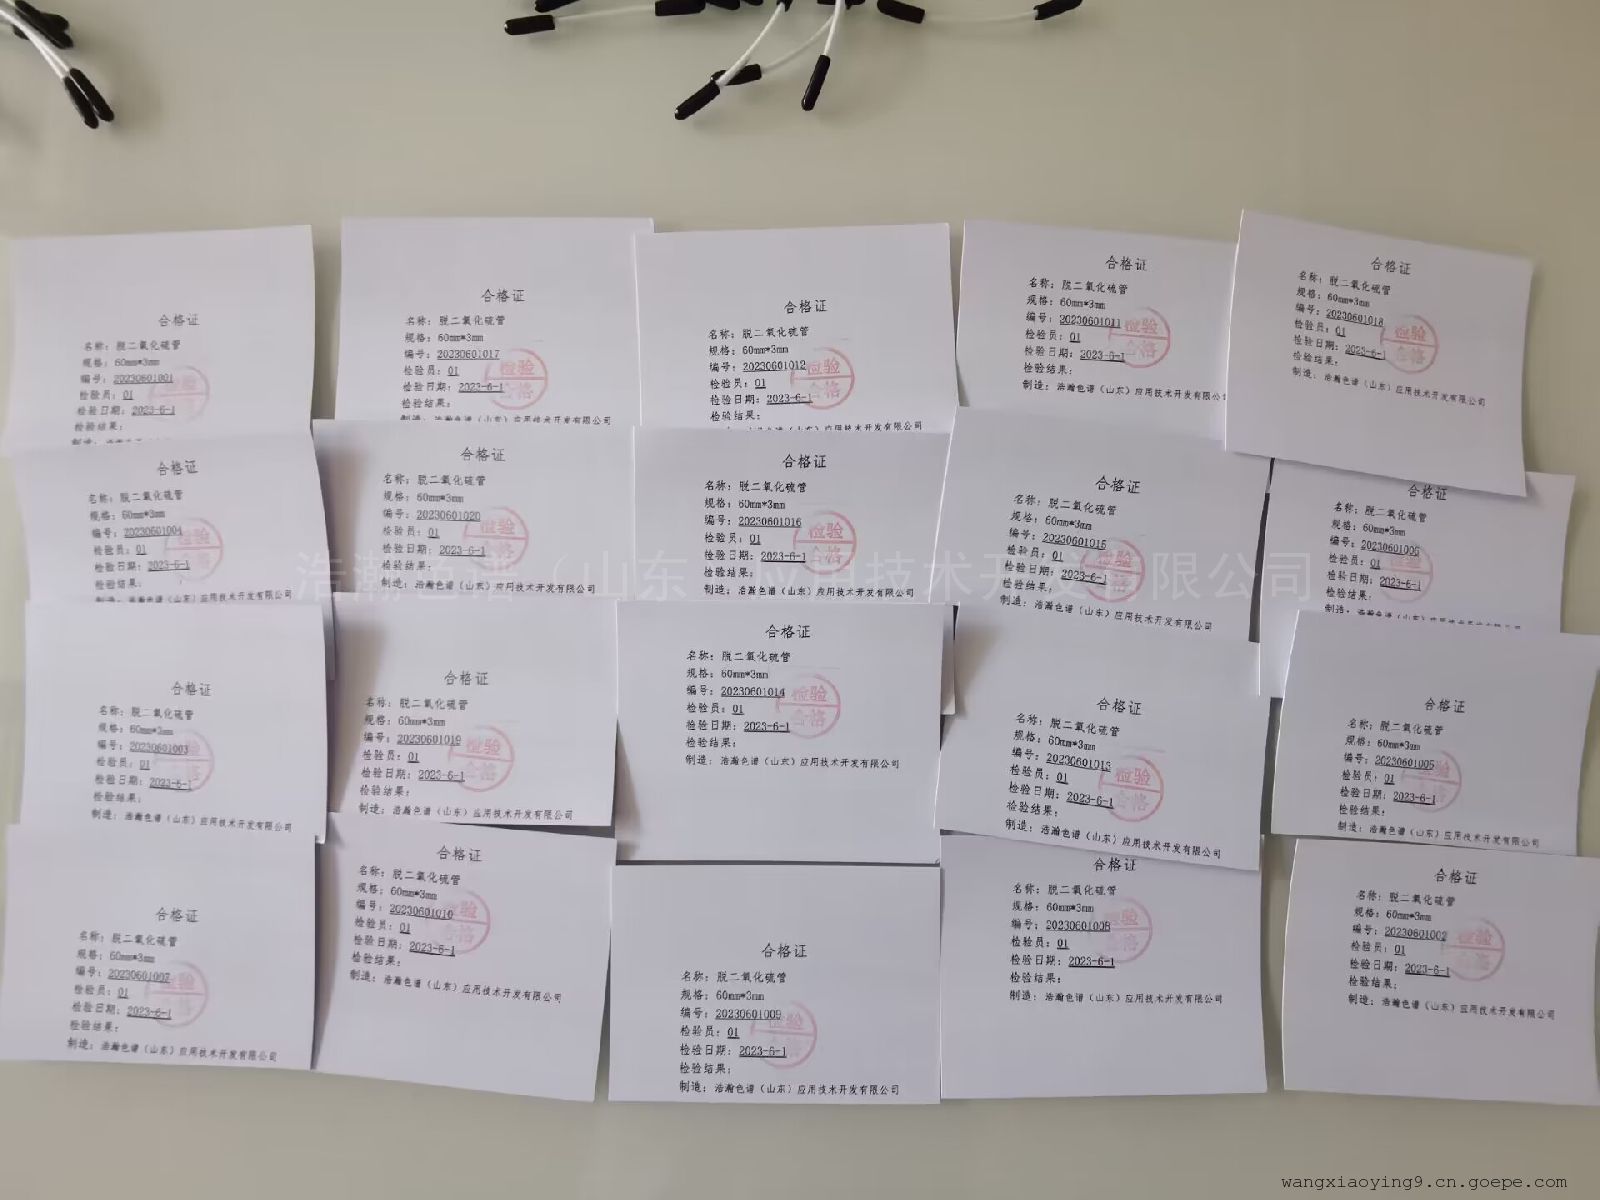 合格证
名称：脱二氧化硫管
规格：60mm*3mm
编号：20230601001
检验员：01
检验日期：2023-6-1
检验结果：
合格证
名称：脱二氧化硫管
规格：60mm*3mm
编号：20230601017
检验员：01
检验日期：2023-6-1
检验结果：
制造：浩瀚色谱（山东）应用技术开发有限公司
检验
合格
合格证
名称：脱二氧化硫管
规格：60mm*3mm
编号：20230601012
检验员：01
检验日期：2023-6-1
检验结果：
应用技术开发有限公司
检验
合格
合格证
名称：脱二氧化硫管
规格：60mm*3mm
编号：20230601011
检验员：01
检验日期：2023-6-1
检验结果：
制造：浩瀚色谱（山东）应用技术开发有限公
检验
合格
合格证
名称：脱二氧化硫管
规格：60mm*3mm
编号：20230601018
检验员：01
检验日期：2023-6-1
检验结果：
制造：浩瀚色谱（山东）应用技术开发有限公司
检验
合格
合格证
名称：脱二氧化硫管
规格：60mm*3mm
编号：20230601004
检验员：01
检验日期：2023-6-1
检验结果：
制造：浩瀚色谱（山东）应用技术开发有限公司
检验
合格
合格证
名称：脱二氧化硫管
规格：60mm*3mm
编号：20230601020
检验员：01
检验日期：2023-6-1
检验结果：
制造：浩瀚色谱（山东）应用技术开发有限公司
检验
合格
合格证
名称：脱二氧化硫管
规格：60mm*3mm
编号：20230601016
检验员：01
检验日期：2023-6-1
检验结果：
制造：浩瀚色谱（山东）应用技术开发有限公司
检验
合格
合格证
名称：脱二氧化硫管
规格：60mm*3mm
编号：20230601015
检验员：01
检验日期：2023-6-1
检验结果：
制造：浩瀚色谱（山东）应用技术开发有限公司
检验
合格
合格证
名称：脱二氧化硫管
规格：60mm*3mm
检验员：01
检验日期：2023-6-1
检验结果：
浩瀚色谱（山东）应用技术开发有限公司
合格证
名称：脱二氧化硫管
规格：60mm*3mm
编号：20230601003
检验员：01
检验日期：2023-6-1
检验结果：
制造：浩瀚色谱（山东）应用技术开发有限公司
合格证
名称：脱二氧化硫管
规格：60mm*3mm
编号：20230601019
检验员：01
检验日期：2023-6-1
检验结果：
制造：浩瀚色谱（山东）应用技术开发有限公司
检验
合格
合格证
名称：脱二氧化硫管
规格：60mm*3mm
编号：20230601014
检验员：01
检验日期：2023-6-1
检验结果：
制造：浩瀚色谱（山东）应用技术开发有限公司
检验
合格
合格证
名称：脱二氧化硫管
规格：60mm*3mm
编号：20230601013
检验员：01
检验日期：2023-6-1
检验结果：
制造：浩瀚色谱（山东）应用技术开发有限公司
检验
合格
合格证
名称：脱二氧化硫管
规格：60mm*3mm
编号：20230601005
检验员：01
检验日期：2023-6-1
检验结果：
制造：浩瀚色谱（山东）应用技术开发有限公司
合格证
名称：脱二氧化硫管
规格：60mm*3mm
编号：20230601007
检验员：01
检验日期：2023-6-1
检验结果：
制造：浩瀚色谱（山东）应用技术开发有限公司
合格证
名称：脱二氧化硫管
规格：60mm*3mm
编号：20230601010
检验员：01
检验日期：2023-6-1
检验结果：
制造：浩瀚色谱（山东）应用技术开发有限公司
合格证
名称：脱二氧化硫管
规格：60mm*3mm
编号：20230601009
检验员：01
检验日期：2023-6-1
检验结果：
制造：浩瀚色谱（山东）应用技术开发有限公司
合格证
名称：脱二氧化硫管
规格：60mm*3mm
编号：20230601008
检验员：01
检验日期：2023-6-1
检验结果：
制造：浩瀚色谱（山东）应用技术开发有限公司
合格证
名称：脱二氧化硫管
规格：60mm*3mm
编号：20230601002
检验员：01
检验日期：2023-6-1
检验结果：
制造：浩瀚色谱（山东）应用技术开发有限公司
检验
合格
浩瀚色谱（山东）应用技术开发有限公司
wangxiaoying9.cn.goepe.com